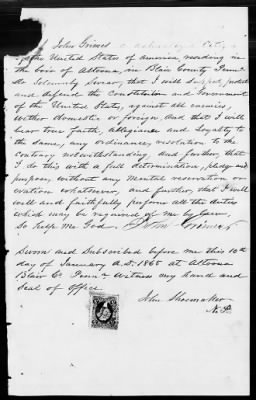 I John Grimes a Citizen
of the United States of america residing in
the Coir of Altoona, in Blair County Penna
do Solemnly Swear, that I will Support, protect
and defend the Constitution and Government
of the United States, against all enemies,
wether domestic or foreign. And that I will
bear true faith, allegiance and Loyalty to
the same, any ordinance, resolution to the
contrary notwithstanding. And further, that
I do this with a full determination, pledge and
purpose, without any mental reservation or
evation whatsoever, and further, that I will
well and faithfully preform all the duties
which may be required of me by Law.
So help me God. John Grimes
Sworn and Subscribed before me this 10th
day of January A.D. 1865 at Altoona
Blair Co Penna Witness my hand and
Seal of Office
John Shoemaker
N.P.